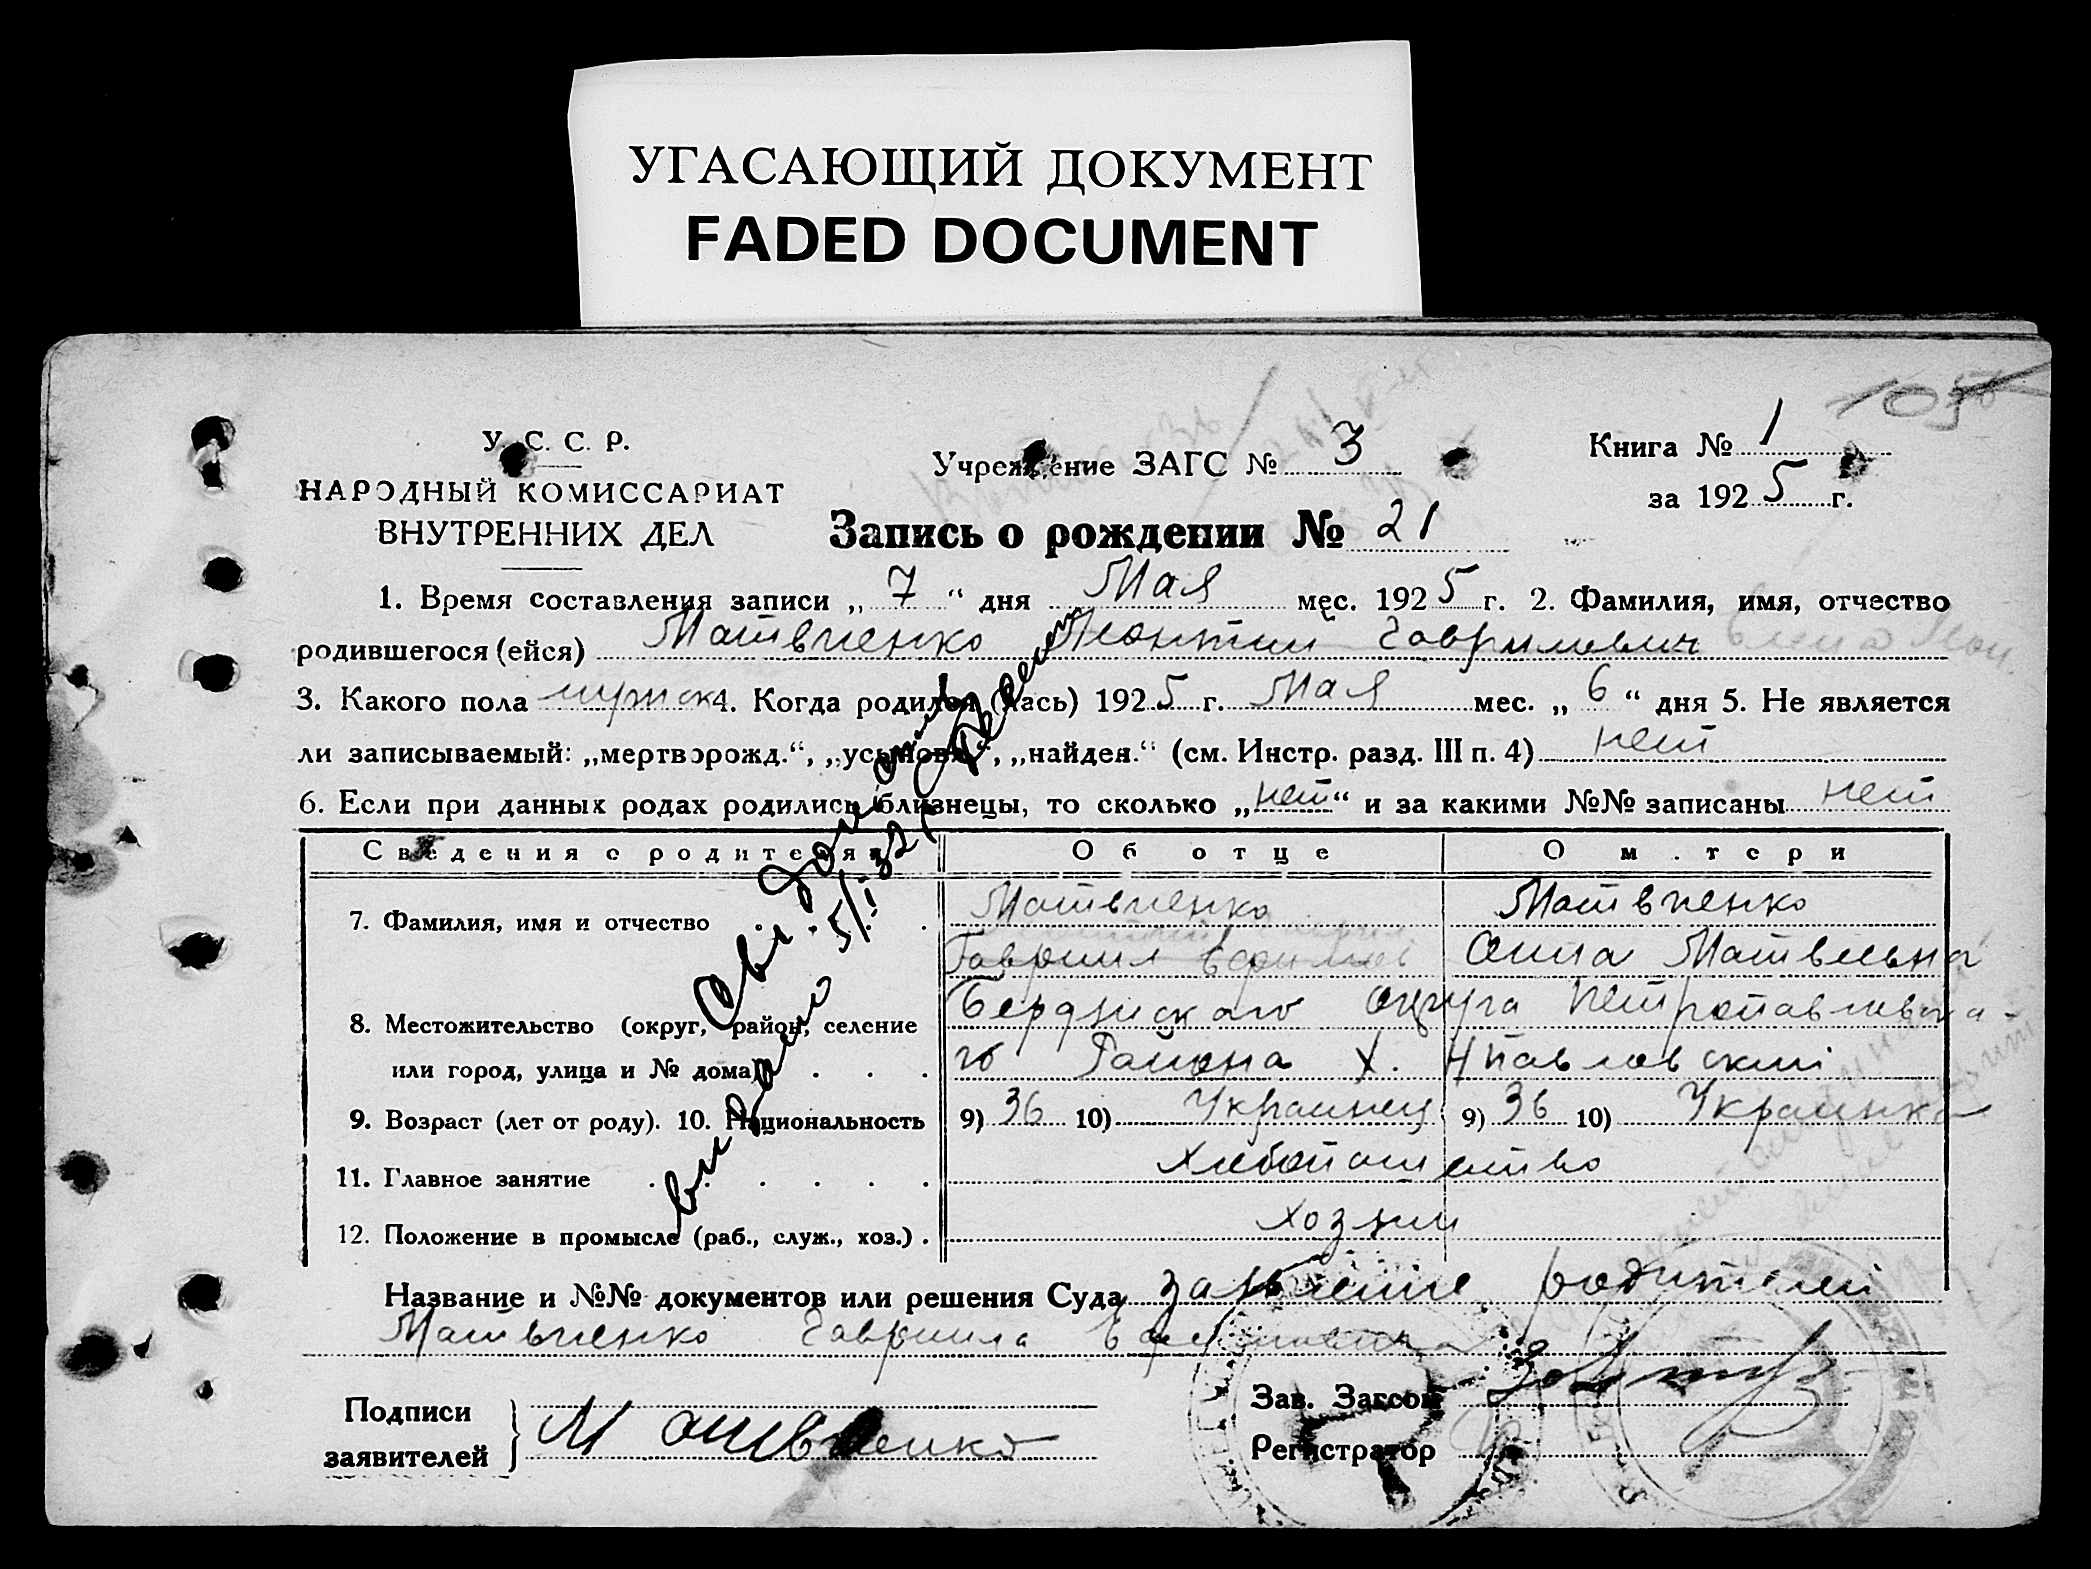 УГАСАЮЩИЙ ДОКУМЕНТ
FADED DOCUMENT
105
У. С. С. Р.
НАРОДНЫЙ КОМИССАРИАТ
ВНУТРЕННИХ ДЕЛ
Учреждение ЗАГС № 3
Книга № 1
за 1925 г.
Запись о рождении № 21
1. Время составления записи „ 7 “ дня Мая мес. 1925 г. 2. Фамилия, имя, отчество
родившегося (ейся) Матвиенко Гаврилович
3. Какого пола мужск 4. Когда родился (лась) 1925 г. Мая мес. „ 6 “ дня 5. Не является
ли записываемый: „мертворожд.“, „усыновл“, „найден.“ (см. Инстр. разд. III п. 4) нет
6. Если при данных родах родились близнецы, то сколько „нет“ и за какими №№ записаны нет
Сведения о родителях Об отце О матери
7. Фамилия, имя и отчество Матвиенко Матвиенко
Гавриил Анна Матвеевна
8. Местожительство (округ, район, селение Бердянского округа Петропавловска-
или город, улица и № дома) го Района Х. Н Павловский
9. Возраст (лет от роду). 10. Национальность 9) 36 10) Украинец 9) 36 10) Украинка
11. Главное занятие Хлебопашество
12. Положение в промысле (раб., служ., хоз.) хозяин
Название и №№ документов или решения Суда заявление родителей
Матвиенко Гавриила
Подписи
заявителей
Матвиенко
Зав. Загсом
Регистратор
выдано 5/I 32 г.